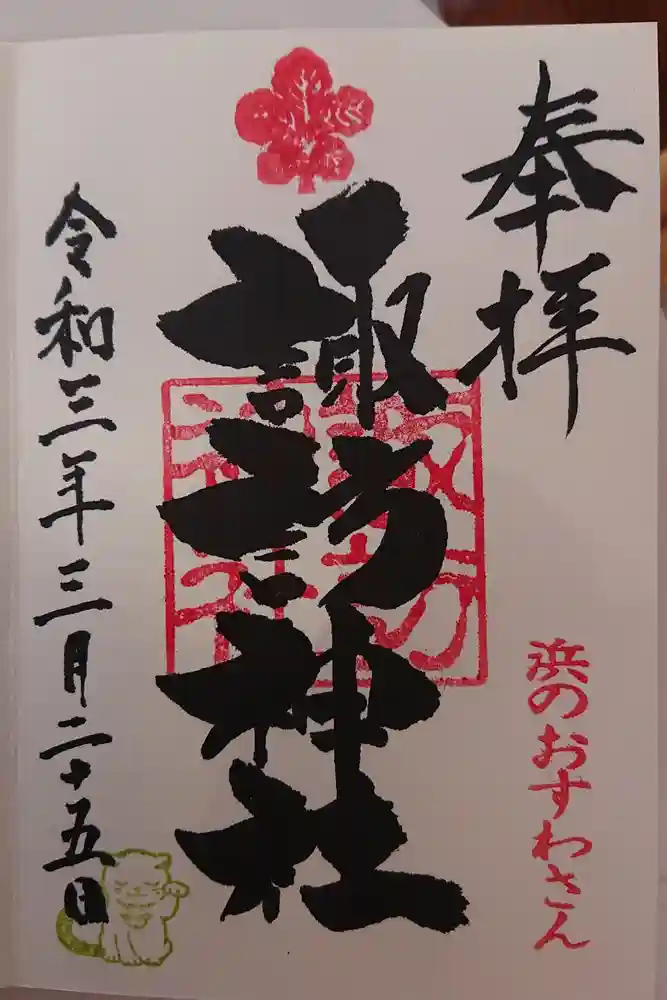 奉拝
浜のおすわさん
諏訪神社
諏訪神社
令和三年三月二十五日